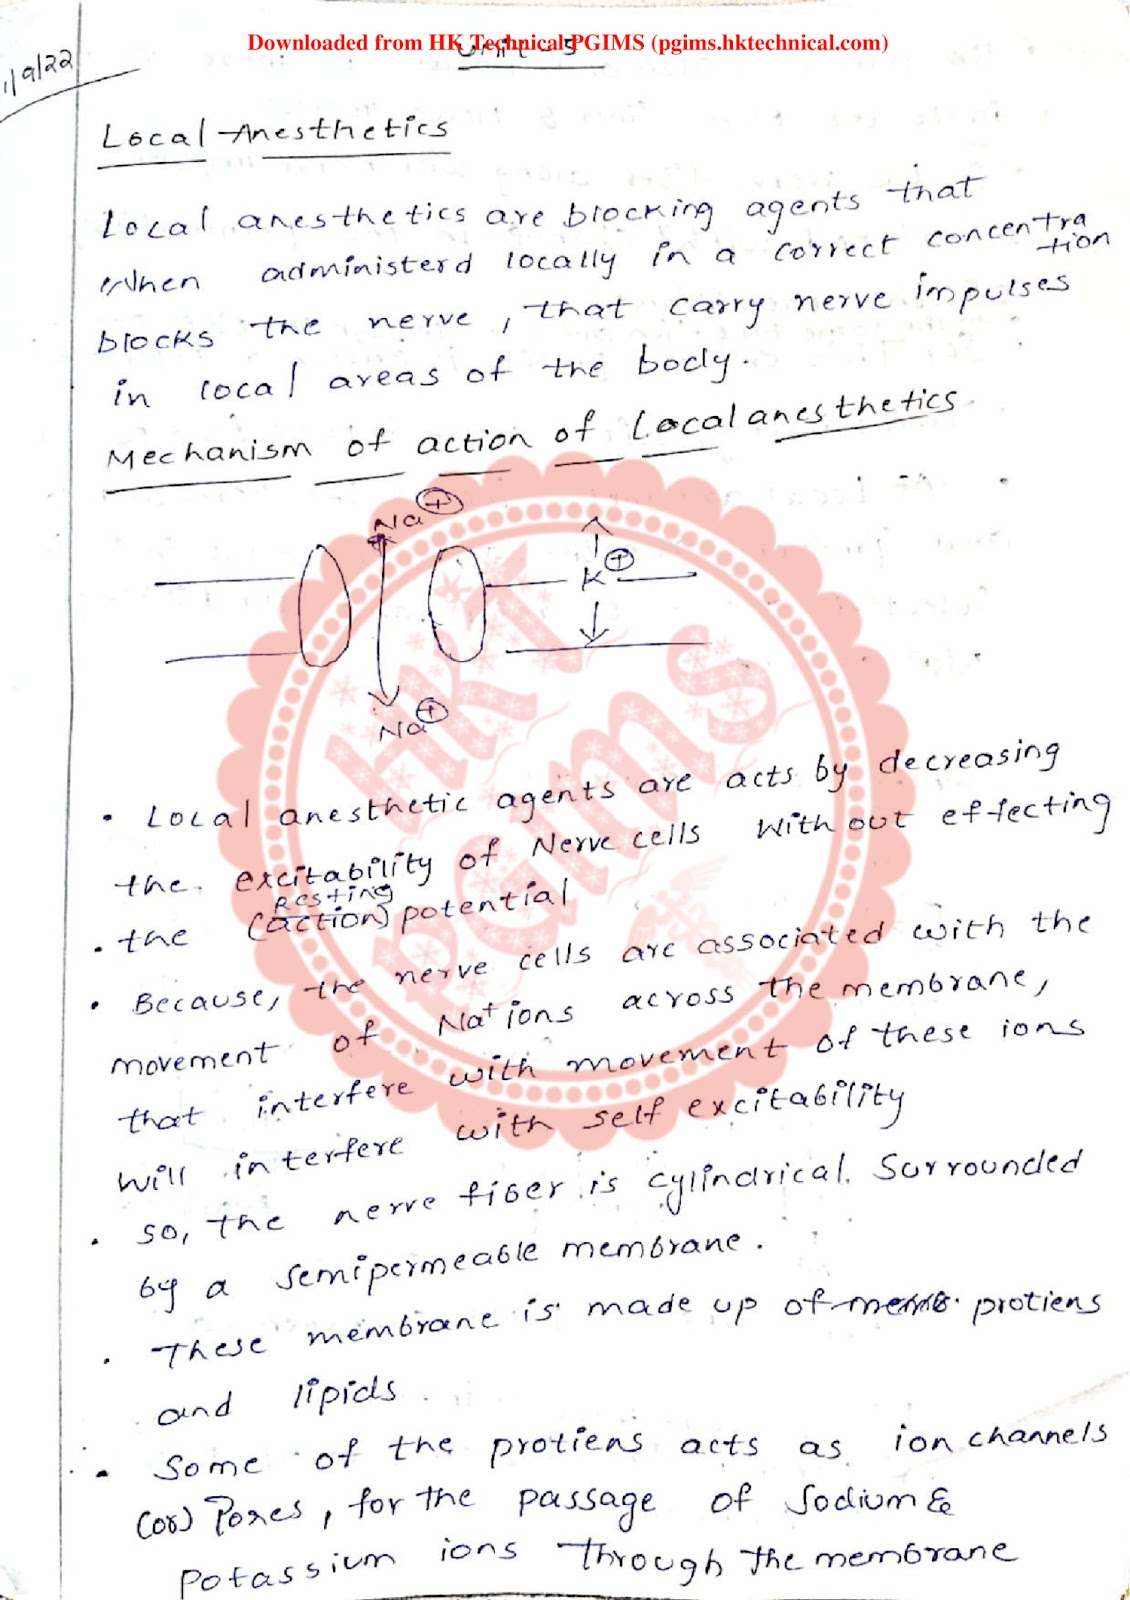 Downloaded from HK Technical PGIMS (pgims.hktechnical.com)
Unit-5
1/9/22
Local Anesthetics
Local anesthetics are blocking agents that
when administerd locally in a correct concentration
blocks the nerve, that carry nerve impulses
in local areas of the body.
Mechanism of action of Local anesthetics
Na+
K+
Na+
• Local anesthetic agents are acts by decreasing
the excitability of Nerve cells without effecting
Resting
• the (action) potential
• Because, the nerve cells are associated with the
movement of Na+ ions across the membrane,
that interfere with movement of these ions
will interfere with self excitability
• so, the nerve fiber is cylindrical. Surrounded
by a semipermeable membrane.
• These membrane is made up of protiens
and lipids.
• Some of the protiens acts as ion channels
(or) Pores, for the passage of sodium &
potassium ions through the membrane
HKT
PGIMS